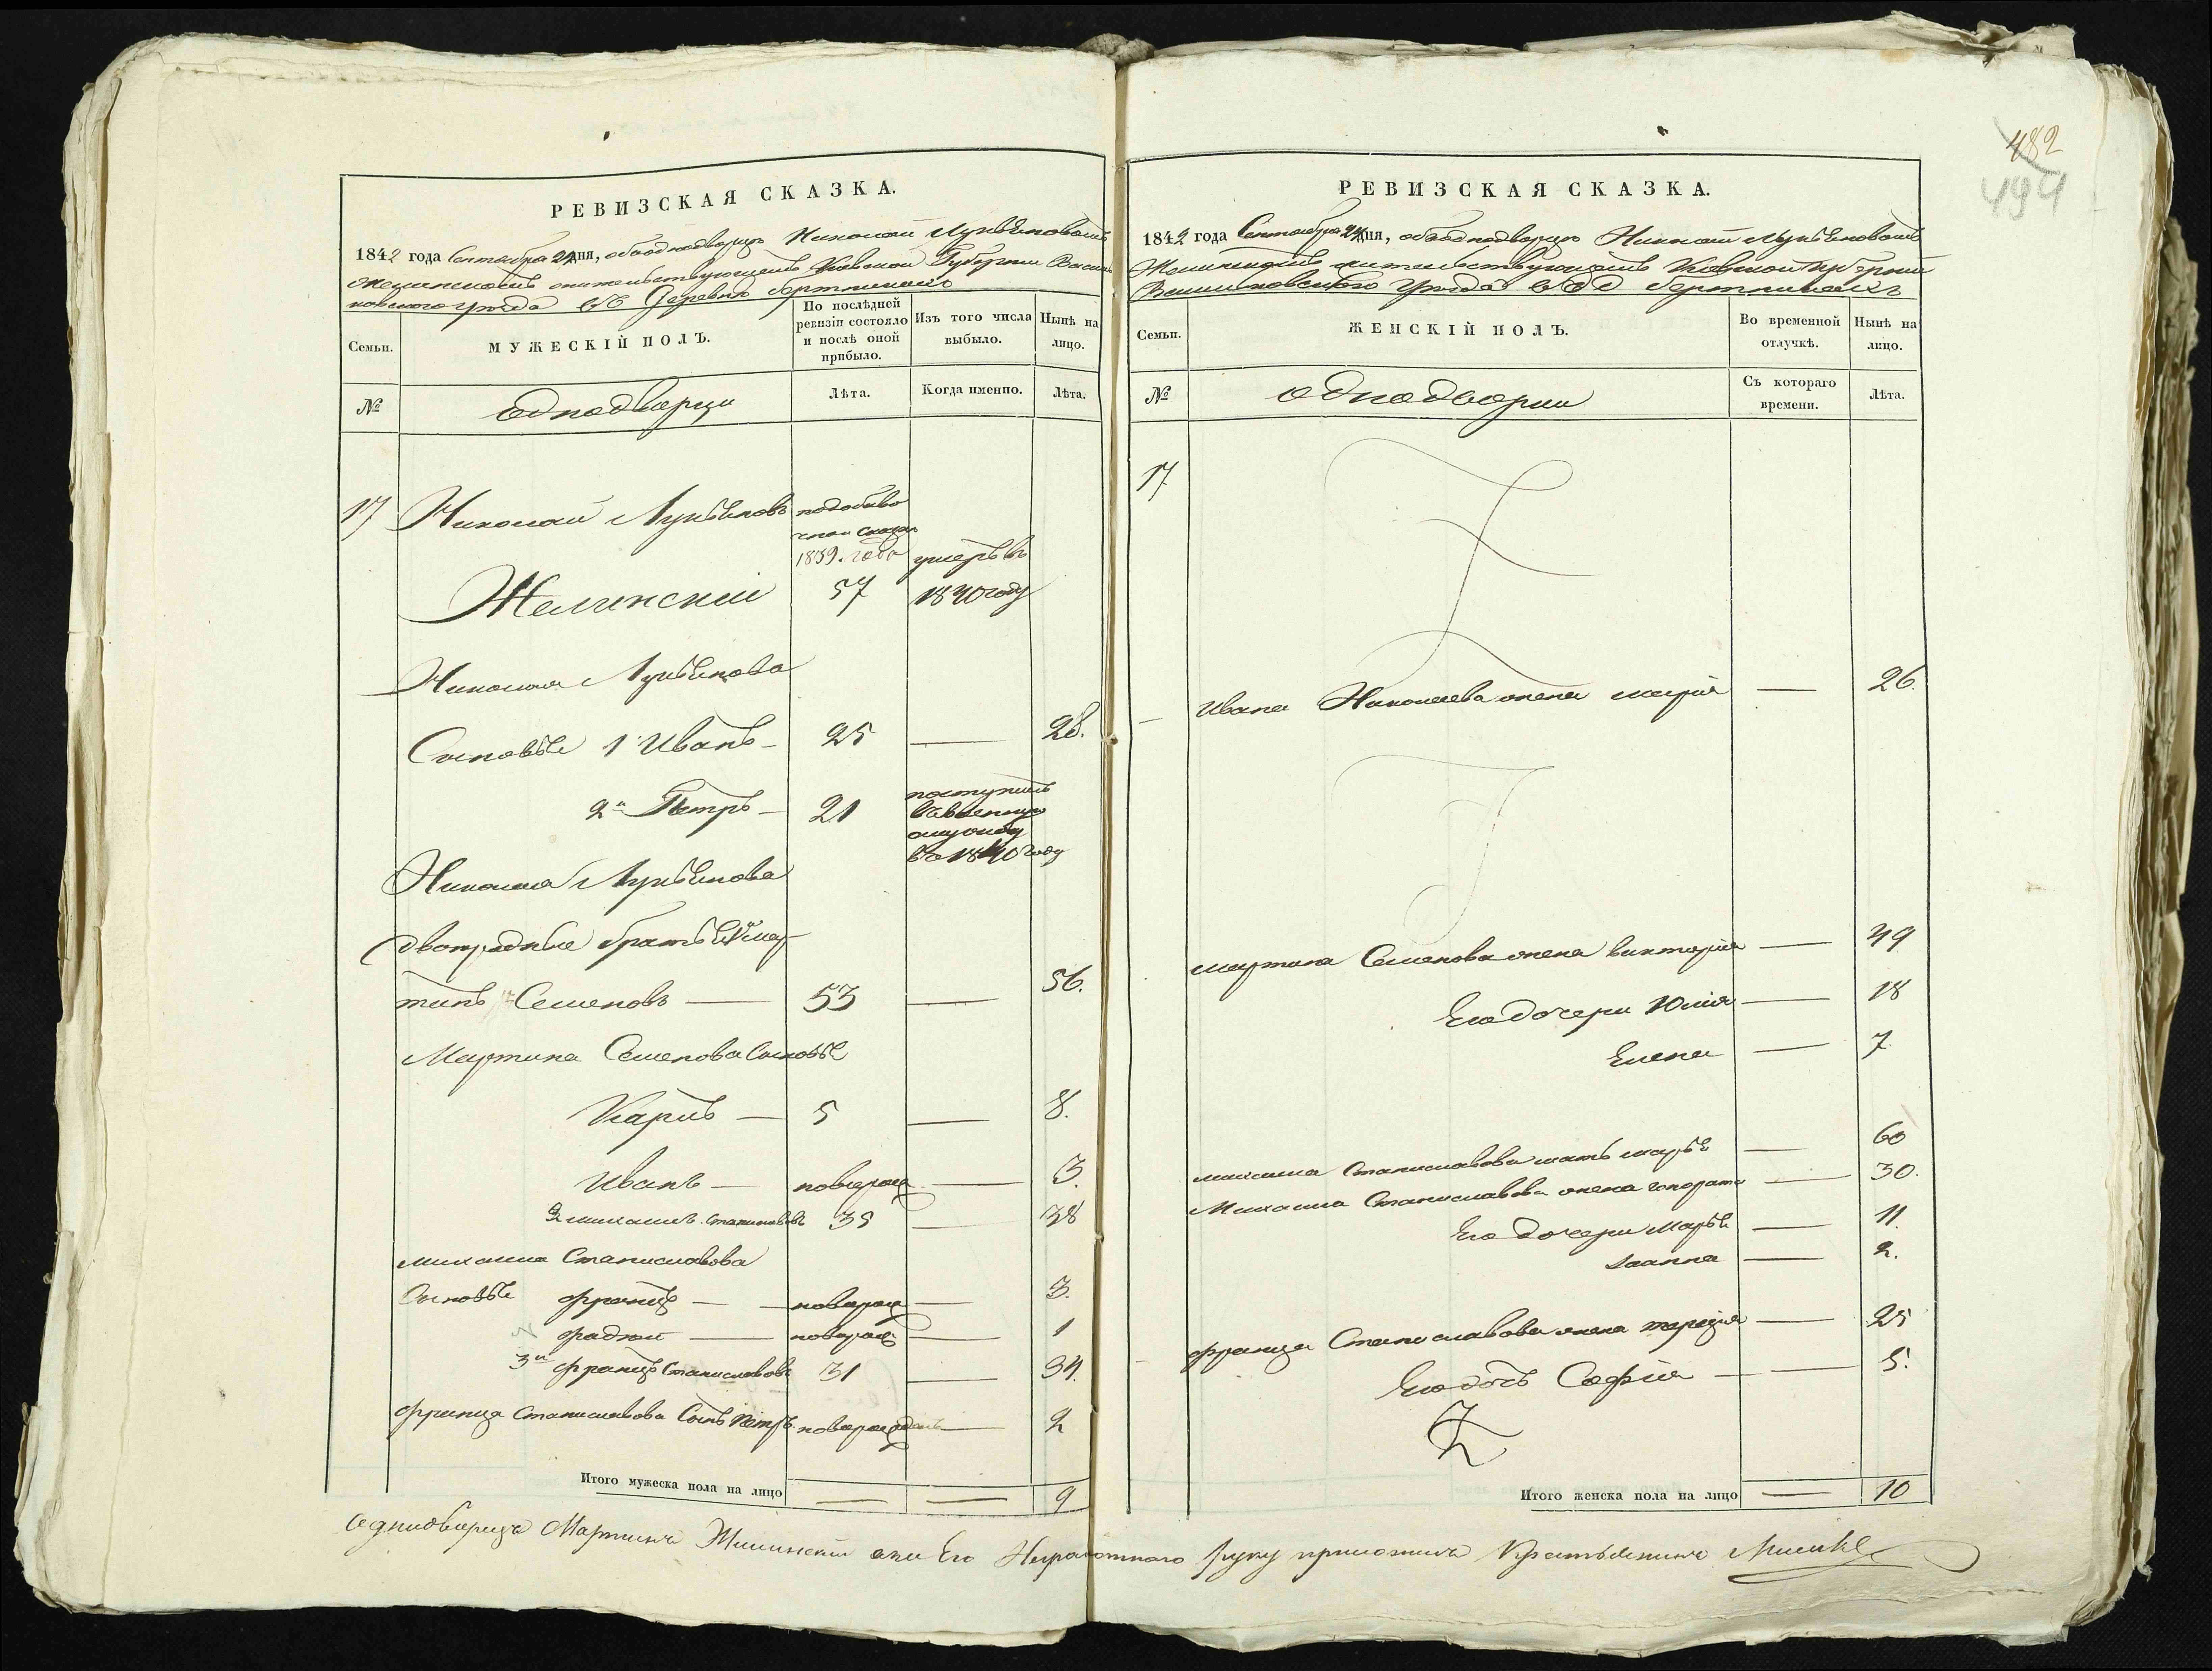 482
494
РЕВИЗСКАЯ СКАЗКА.
1842 года Сентября 24 дня, объ однодворцѣ Николаѣ Лукьяновомъ
Желинскомъ жительствующемъ Кіевской Губерніи Василь
ковскаго уѣзда въ Деревнѣ
Семьи.
МУЖЕСКІЙ ПОЛЪ.
По послѣдней ревизіи состояло и послѣ оной прибыло.
Изъ того числа выбыло.
Нынѣ на лицо.
№
однодворци
Лѣта.
Когда именно.
Лѣта.
17 Николай Лукьяновъ
сказки
1839. года умеръ въ
Желинскій 57 1840 году
Николая Лукьянова
Сыновья 1 Иванъ — 25 — 28.
2й Петръ — 21 поступилъ
въ военную
службу
въ 1840 году
Николая Лукьянова
двоюродные братья 1й Мар-
тинъ Семеновъ — 53 — 56.
Мартина Семенова Сыновья
Карлъ — 5 — 8.
Иванъ — новорож — 3.
2 михаилъ Станиславовъ 35 — 38
михаила Станиславова
Сыновья францъ — новорож — 3.
фадей — новорож — 1
3й францъ Станиславовъ 31 — 34.
франца Станиславова Сынъ Петръ новорожденъ — 2
Итого мужеска пола на лицо — — 9
РЕВИЗСКАЯ СКАЗКА.
1842 года Сентября 24 дня, объ однодворцѣ Николаѣ Лукьяновомъ
Желинскомъ жительствующемъ Кіевской Губерніи
Васильковскаго уѣзда въ Д
Семьи.
ЖЕНСКІЙ ПОЛЪ.
Во временной отлучкѣ.
Нынѣ на лицо.
№
однодворци
Съ котораго времени.
Лѣта.
17.
Ивана Николаева жена марія — 26.
мартина Семенова жена викторія — 49
Его дочери Юлія — 18
Елена — 7
михаила Станиславова мать марья — 60
Михаила Станиславова жена гонората — 30.
Его дочери Марья — 11.
Іоанна — 2.
франца Станиславова жена — 25
Его дочь Софія — 5.
Итого женска пола на лицо — 10
однодворецъ Мартинъ Желинскій а за Его Неграмотнаго руку приложилъ